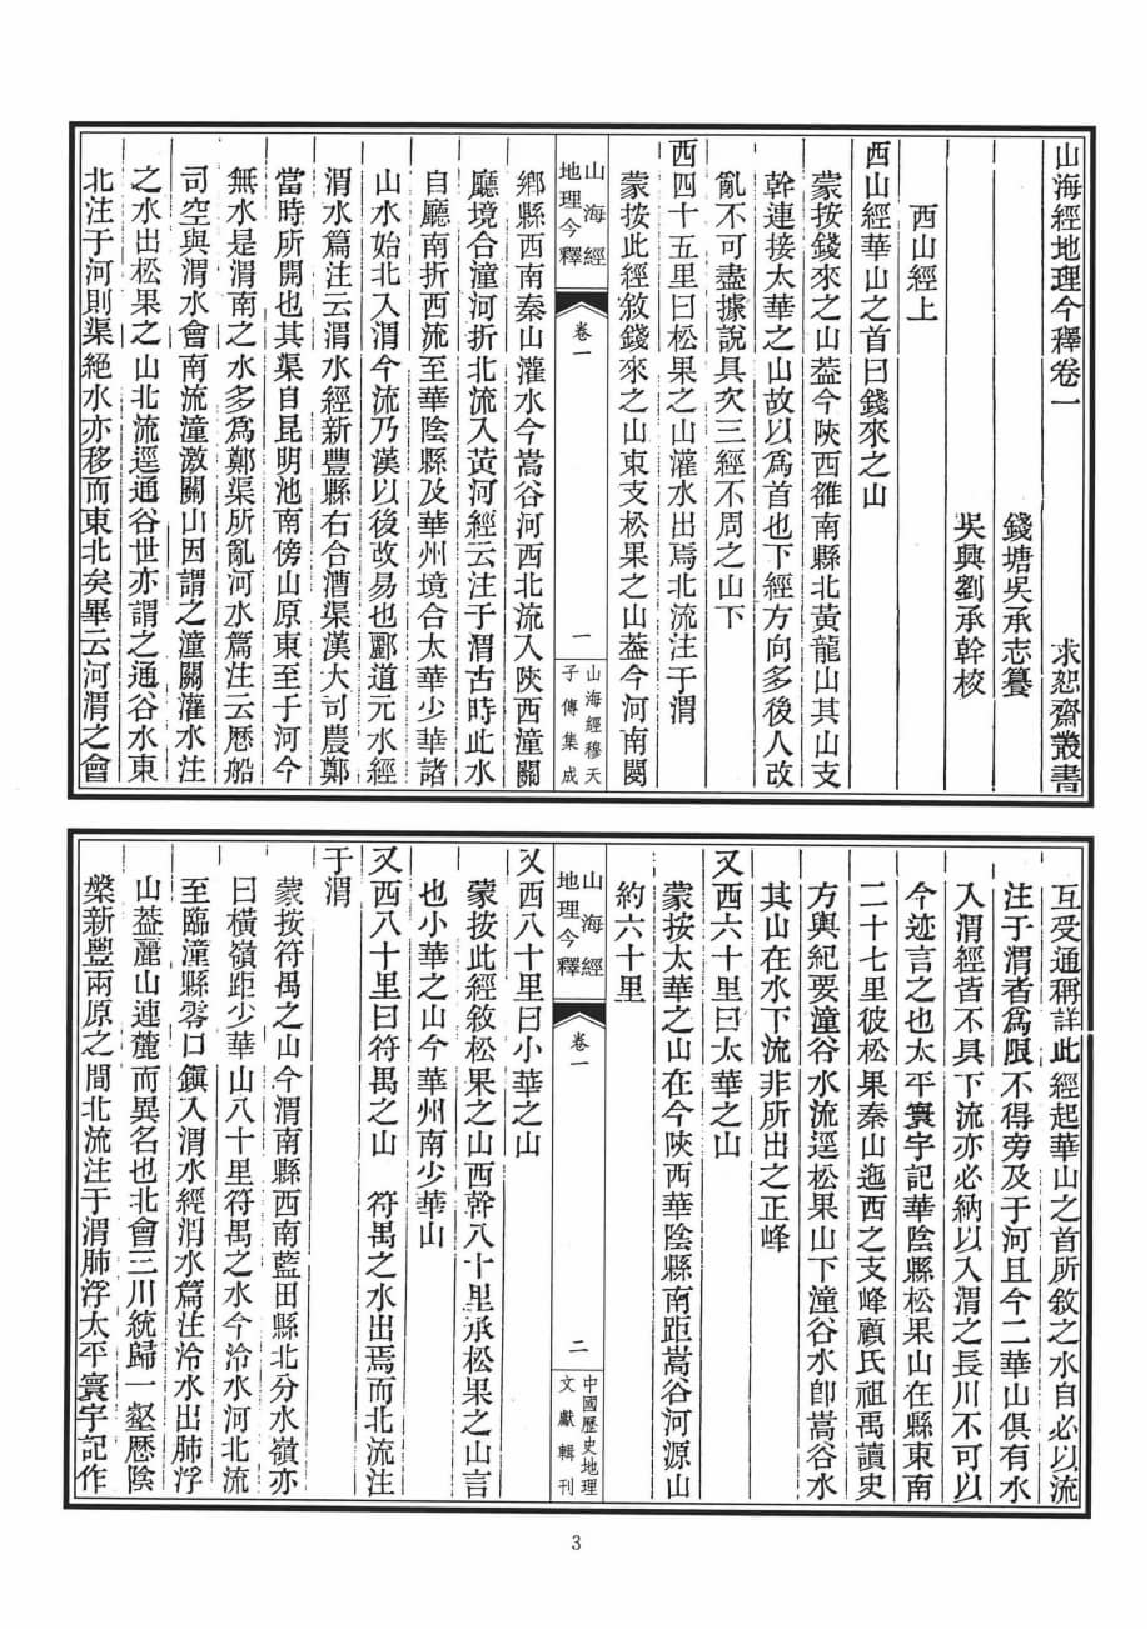 山海經地理今釋卷一　求恕齋叢書
錢塘吳承志纂
吳興劉承幹校
西山經上
西山經華山之首曰錢來之山
蒙按錢來之山葢今陜西雒南縣北黃龍山其山支
幹連接太華之山故以爲首也下經方向多後人改
亂不可盡據說具次三經不周之山下
西四十五里曰松果之山灌水出焉北流注于渭
蒙按此經敘錢來之山東支松果之山葢今河南閿
山海經
地理今釋
卷一
一
山海經穆天
子傳集成
鄉縣西南秦山灌水今嵩谷河西北流入陜西潼關
廳境合潼河折北流入黃河經云注于渭古時此水
自廳南折西流至華陰縣及華州境合太華少華諸
山水始北入渭今流乃漢以後改易也酈道元水經
渭水篇注云渭水經新豐縣右合漕渠漢大司農鄭
當時所開也其渠自昆明池南傍山原東至于河今
無水是渭南之水多爲鄭渠所亂河水篇注云歷船
司空與渭水會南流潼激關山因謂之潼關灌水注
之水出松果之山北流逕通谷世亦謂之通谷水東
北注于河則渠絕水亦移而東北矣畢云河渭之會
互受通稱詳此經起華山之首所敘之水自必以流
注于渭者爲限不得旁及于河且今二華山俱有水
入渭經皆不具下流亦必納以入渭之長川不可以
今迹言之也太平寰宇記華陰縣松果山在縣東南
二十七里彼松果秦山迤西之支峰顧氏祖禹讀史
方輿紀要潼谷水流逕松果山下潼谷水卽嵩谷水
其山在水下流非所出之正峰
又西六十里曰太華之山
蒙按太華之山在今陜西華陰縣南距嵩谷河源山
約六十里
山海經
地理今釋
卷一
二
中國歷史地理
文獻輯刊
又西八十里曰小華之山
蒙按此經敘松果之山西幹八十里承松果之山言
也小華之山今華州南少華山
又西八十里曰符禺之山　符禺之水出焉而北流注
于渭
蒙按符禺之山今渭南縣西南藍田縣北分水嶺亦
曰橫嶺距少華山八十里符禺之水今泠水河北流
至臨潼縣零口鎭入渭水經渭水篇注泠水出肺浮
山葢麗山連麓而異名也北會三川統歸一壑歷陰
槃新豐兩原之間北流注于渭肺浮太平寰宇記作
3